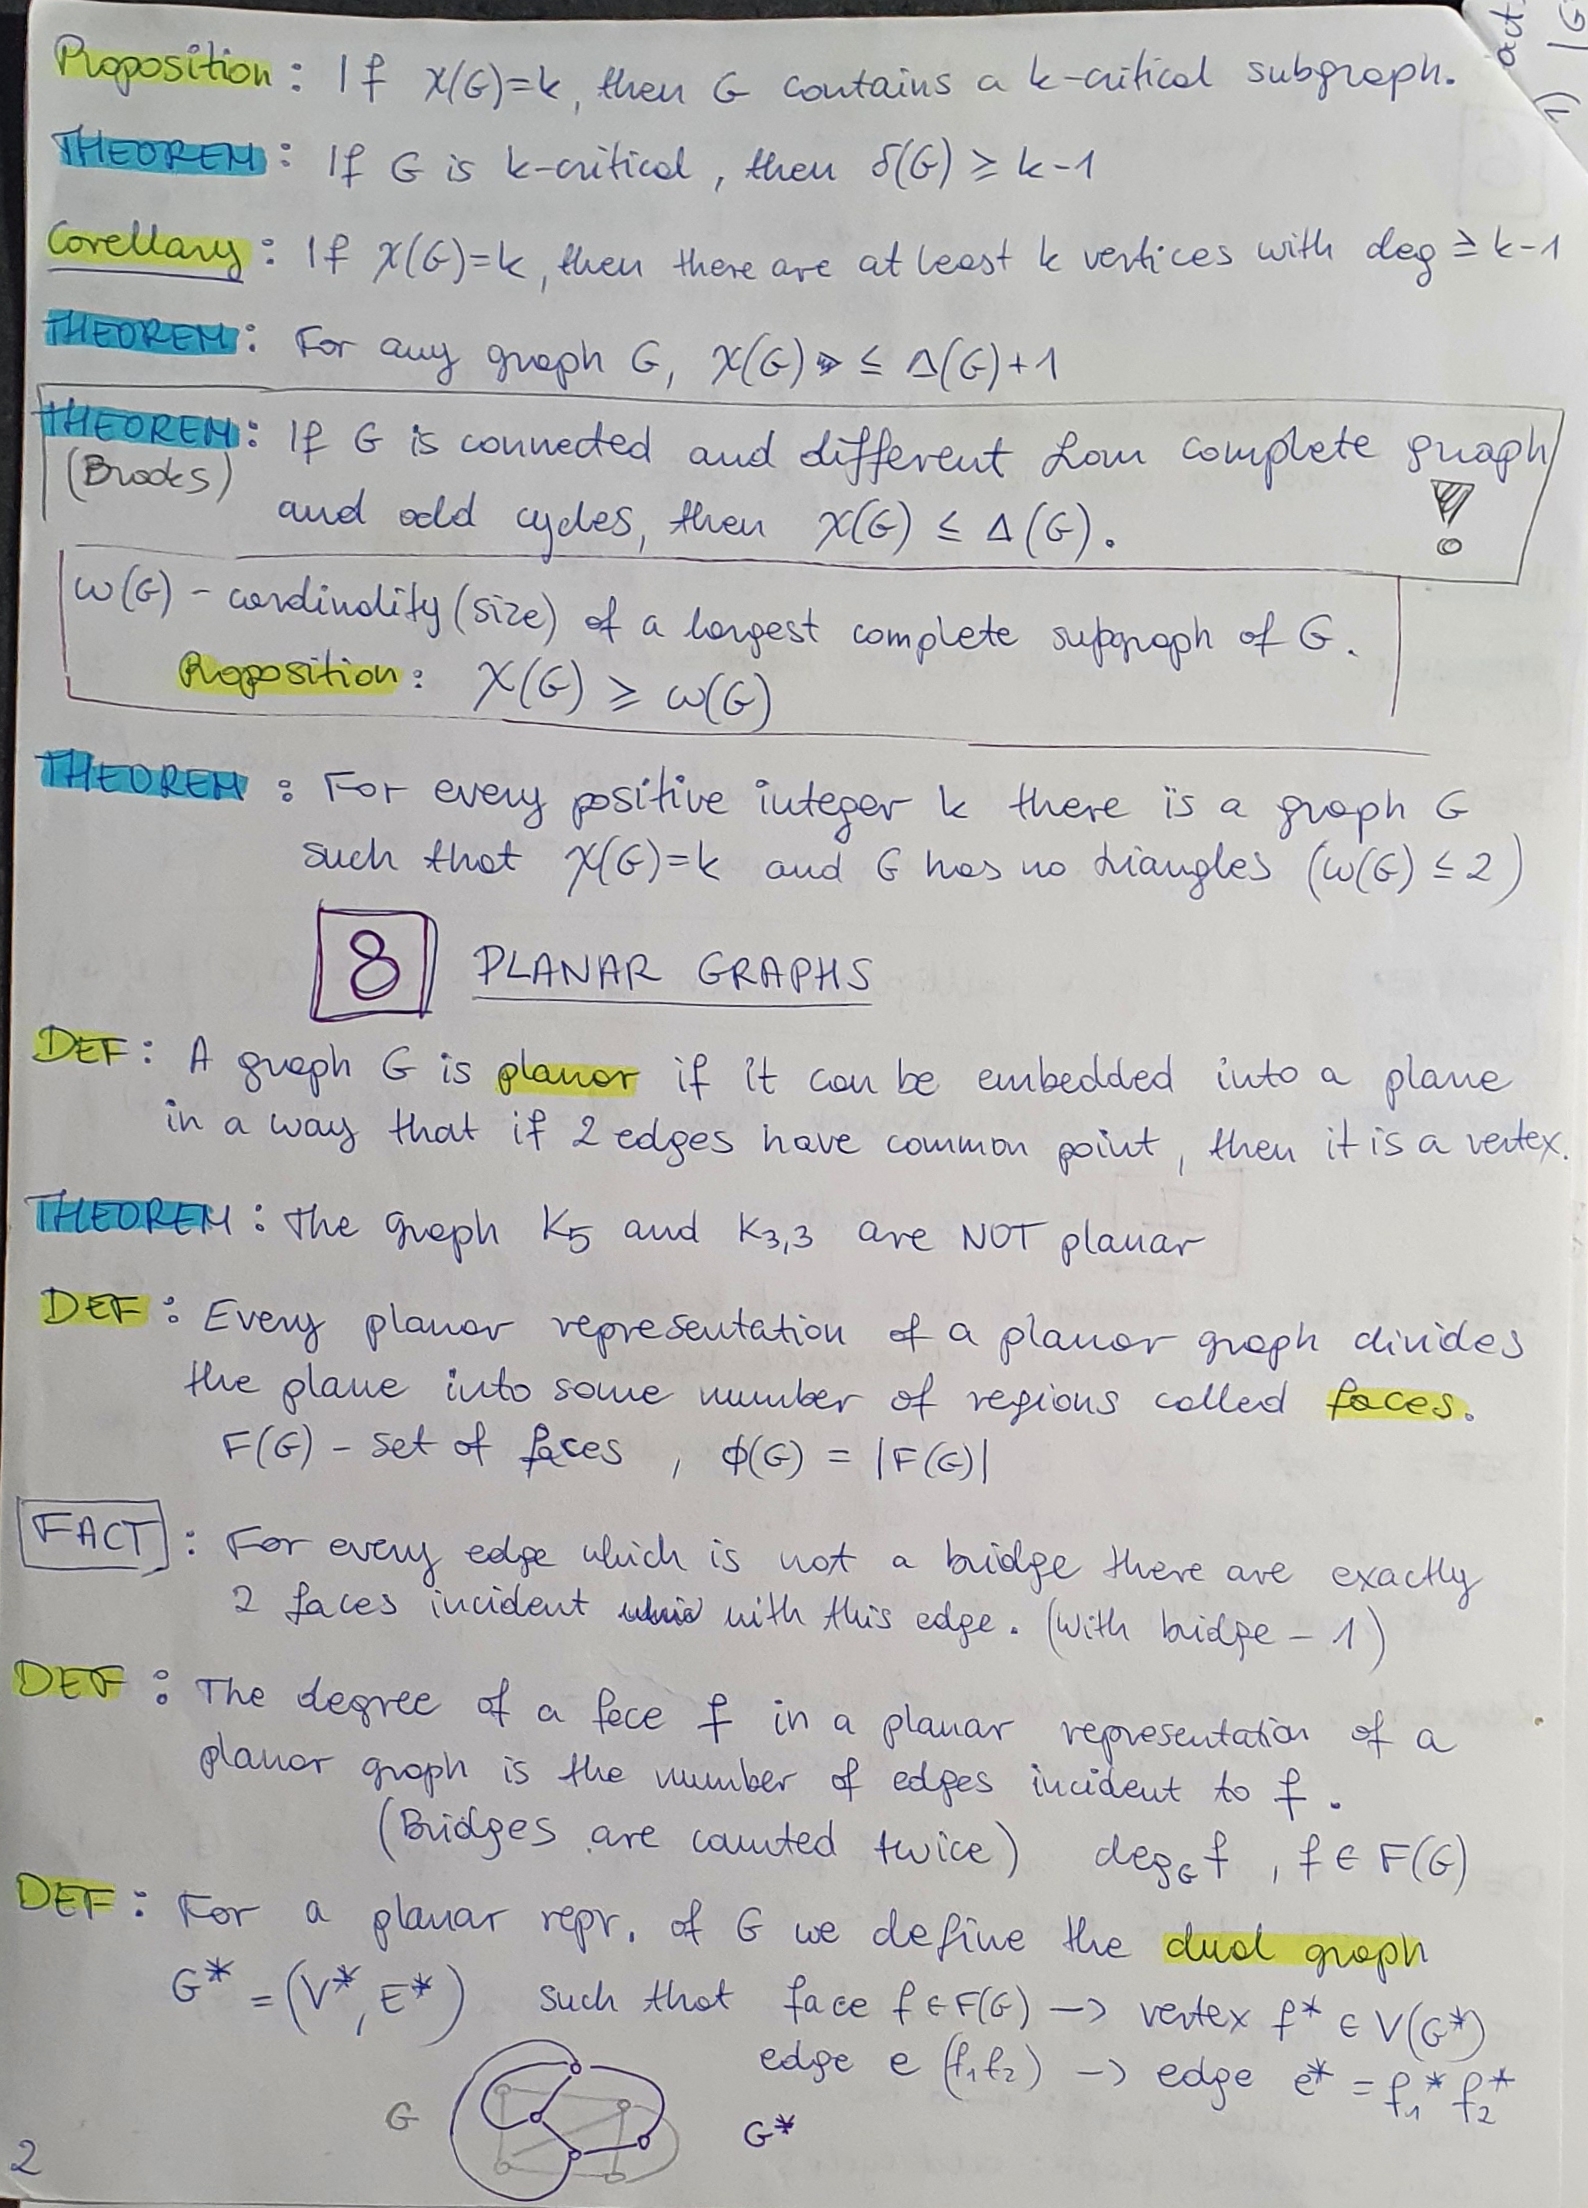 Proposition: If χ(G)=k, then G contains a k-critical subgraph.
THEOREM: If G is k-critical, then δ(G) ≥ k-1
Corellary: If χ(G)=k, then there are at least k vertices with deg ≥ k-1
THEOREM: For any graph G, χ(G) ≤ Δ(G)+1
THEOREM: If G is connected and different from complete graph
(Brooks) and odd cycles, then χ(G) ≤ Δ(G). !
ω(G) - cardinality (size) of a largest complete subgraph of G.
Proposition: χ(G) ≥ ω(G)
THEOREM: For every positive integer k there is a graph G
such that χ(G)=k and G has no triangles (ω(G) ≤ 2)
8 PLANAR GRAPHS
DEF: A graph G is planar if it can be embedded into a plane
in a way that if 2 edges have common point, then it is a vertex.
THEOREM: The graph K5 and K3,3 are NOT planar
DEF: Every planar representation of a planar graph divides
the plane into some number of regions called faces.
F(G) - set of faces, ϕ(G) = |F(G)|
FACT: For every edge which is not a bridge there are exactly
2 faces incident with this edge. (with bridge - 1)
DEF: The degree of a face f in a planar representation of a
planar graph is the number of edges incident to f.
(Bridges are counted twice) deg_G f, f ∈ F(G)
DEF: For a planar repr. of G we define the dual graph
G* = (V*, E*) such that face f ∈ F(G) → vertex f* ∈ V(G*)
edge e (f₁f₂) → edge e* = f₁* f₂*
G
G*
2
act.
1) |G